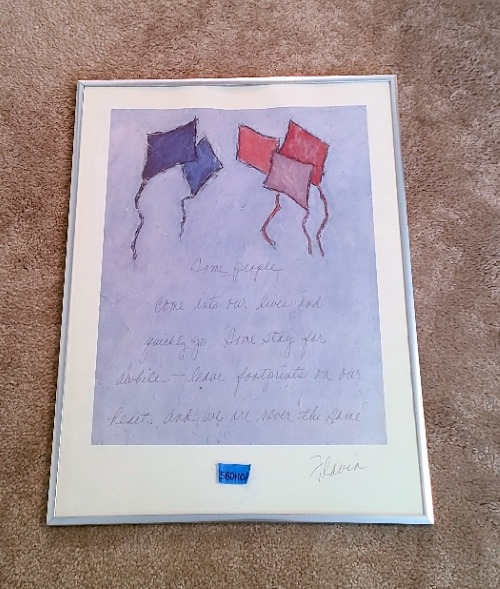 Some people
come into our lives and
quickly go. Some stay for
awhile — leave footprints on our
hearts, and we are never the same
Flavia